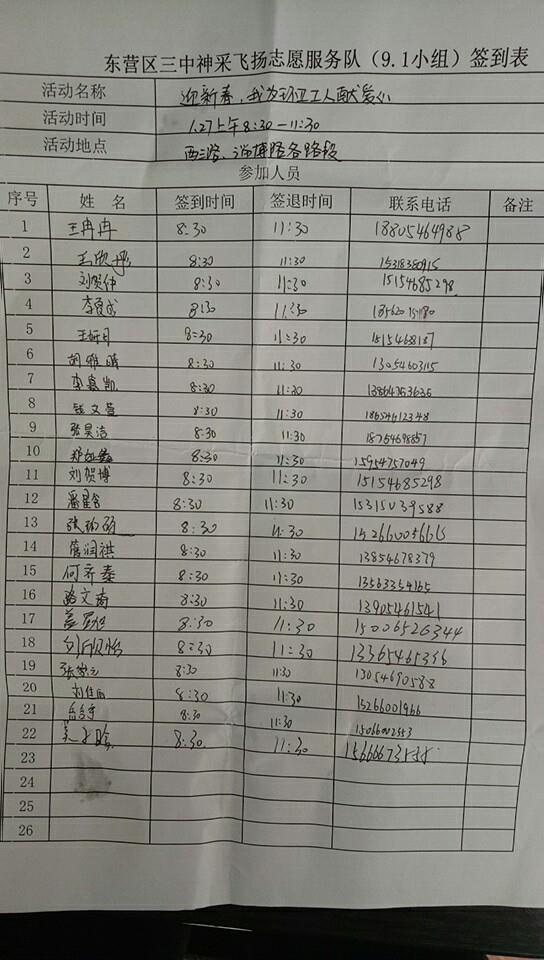 东营区三中神采飞扬志愿服务队（9.1小组）签到表
活动名称 迎新春，我为环卫工人献爱心
活动时间 1.27上午8:30—11:30
活动地点 西三路、淄博路各路段
参加人员
序号 姓名 签到时间 签退时间 联系电话 备注
1 王冉冉 8:30 11:30 18805464988
2 王欣彤 8:30 11:30 15318380915
3 刘贺仲 8:30 11:30 15154685298
4 8:30 11:30
5 王妍月 8:30 11:30
6 胡雅晴 8:30 11:30 13054603115
7 李嘉凯 8:30 11:30
8 8:30 11:30
9 张昊洁 8:30 11:30 18754698857
10 8:30 11:30 15954757049
11 刘贺博 8:30 11:30 15154685298
12 8:30 11:30 15315039588
13 8:30 11:30 15266005666
14 管润祺 8:30 11:30 13854678379
15 何齐秦 8:30 11:30 13563354165
16 路文南 8:30 11:30 13905461541
17 8:30 11:30 15006526344
18 8:30 11:30 13365465336
19 8:30 11:30 13054690588
20 刘佳雨 8:30 11:30 15266001966
21 8:30 11:30 15066002553
22 8:30 11:30
23
24
25
26